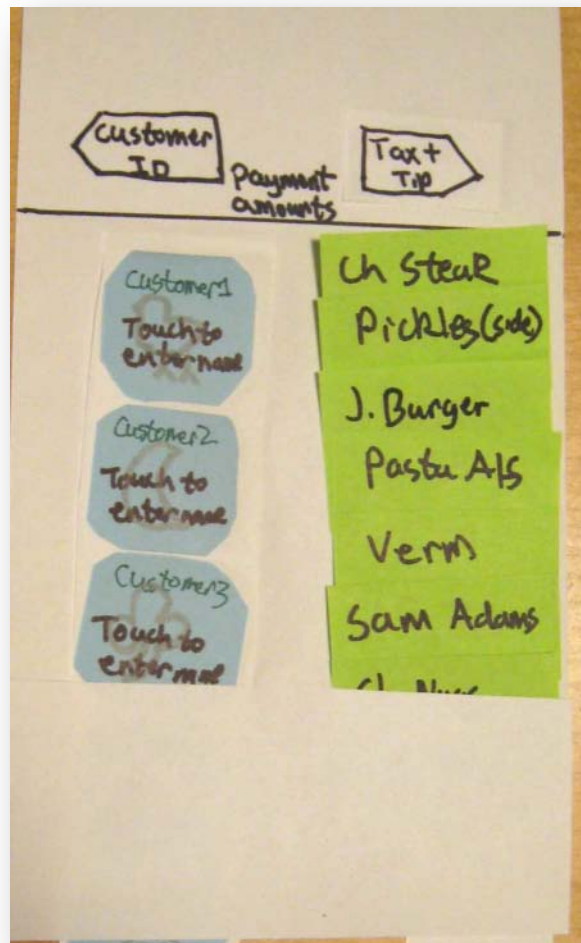 Customer
ID
Payment
amounts
Tax+
Tip
Customer1
Touch to
enter name
Customer2
Touch to
enter name
Customer3
Touch to
enter name
Ch Steak
Pickles (side)
J. Burger
Pasta A/S
Verm
Sam Adams